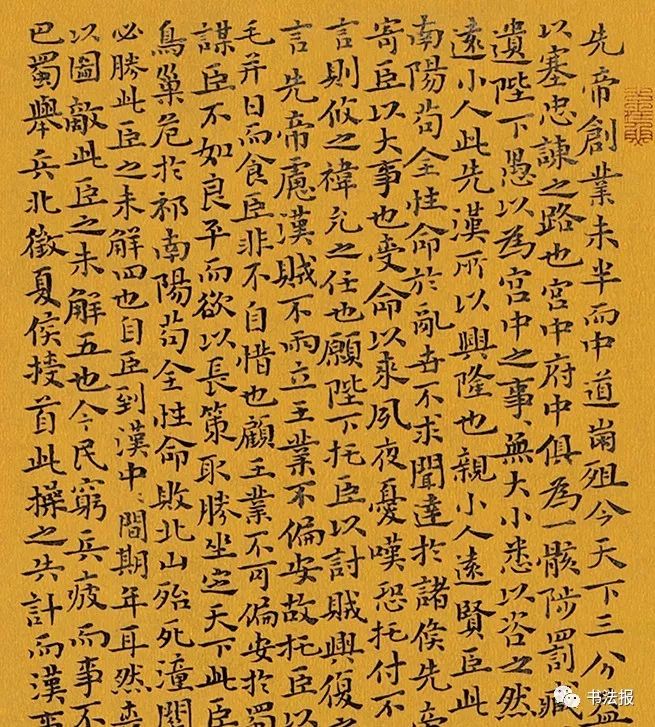 先帝創業未半而中道崩殂今天下三分益
以塞忠諫之路也宮中府中俱為一骸陟罰臧
遺陛下愚以為宮中之事、無大小悉以咨之然
遠小人此先漢所以興隆也親小人遠賢臣此
南陽苟全性命於亂世不求聞達於諸侯先帝
寄臣以大事也受命以來夙夜憂嘆恐托付不
言則攸之禕允之任也願陛下托臣以討賊興復
言先帝慮漢賊不兩立王業不偏安故托臣以
毛并日而食臣非不自惜也顧王業不可偏安於蜀
謀臣不如良平而欲以長策取勝坐定天下此臣
鳥巢危於祁南陽苟全性命敗北山殆死潼關
必勝此臣之未解四也自臣到漢中、間期年耳然喪
以圖敵此臣之未解五也今民窮兵疲而事不
巴蜀舉兵北徵夏侯授首此操之失計而漢事
书法报